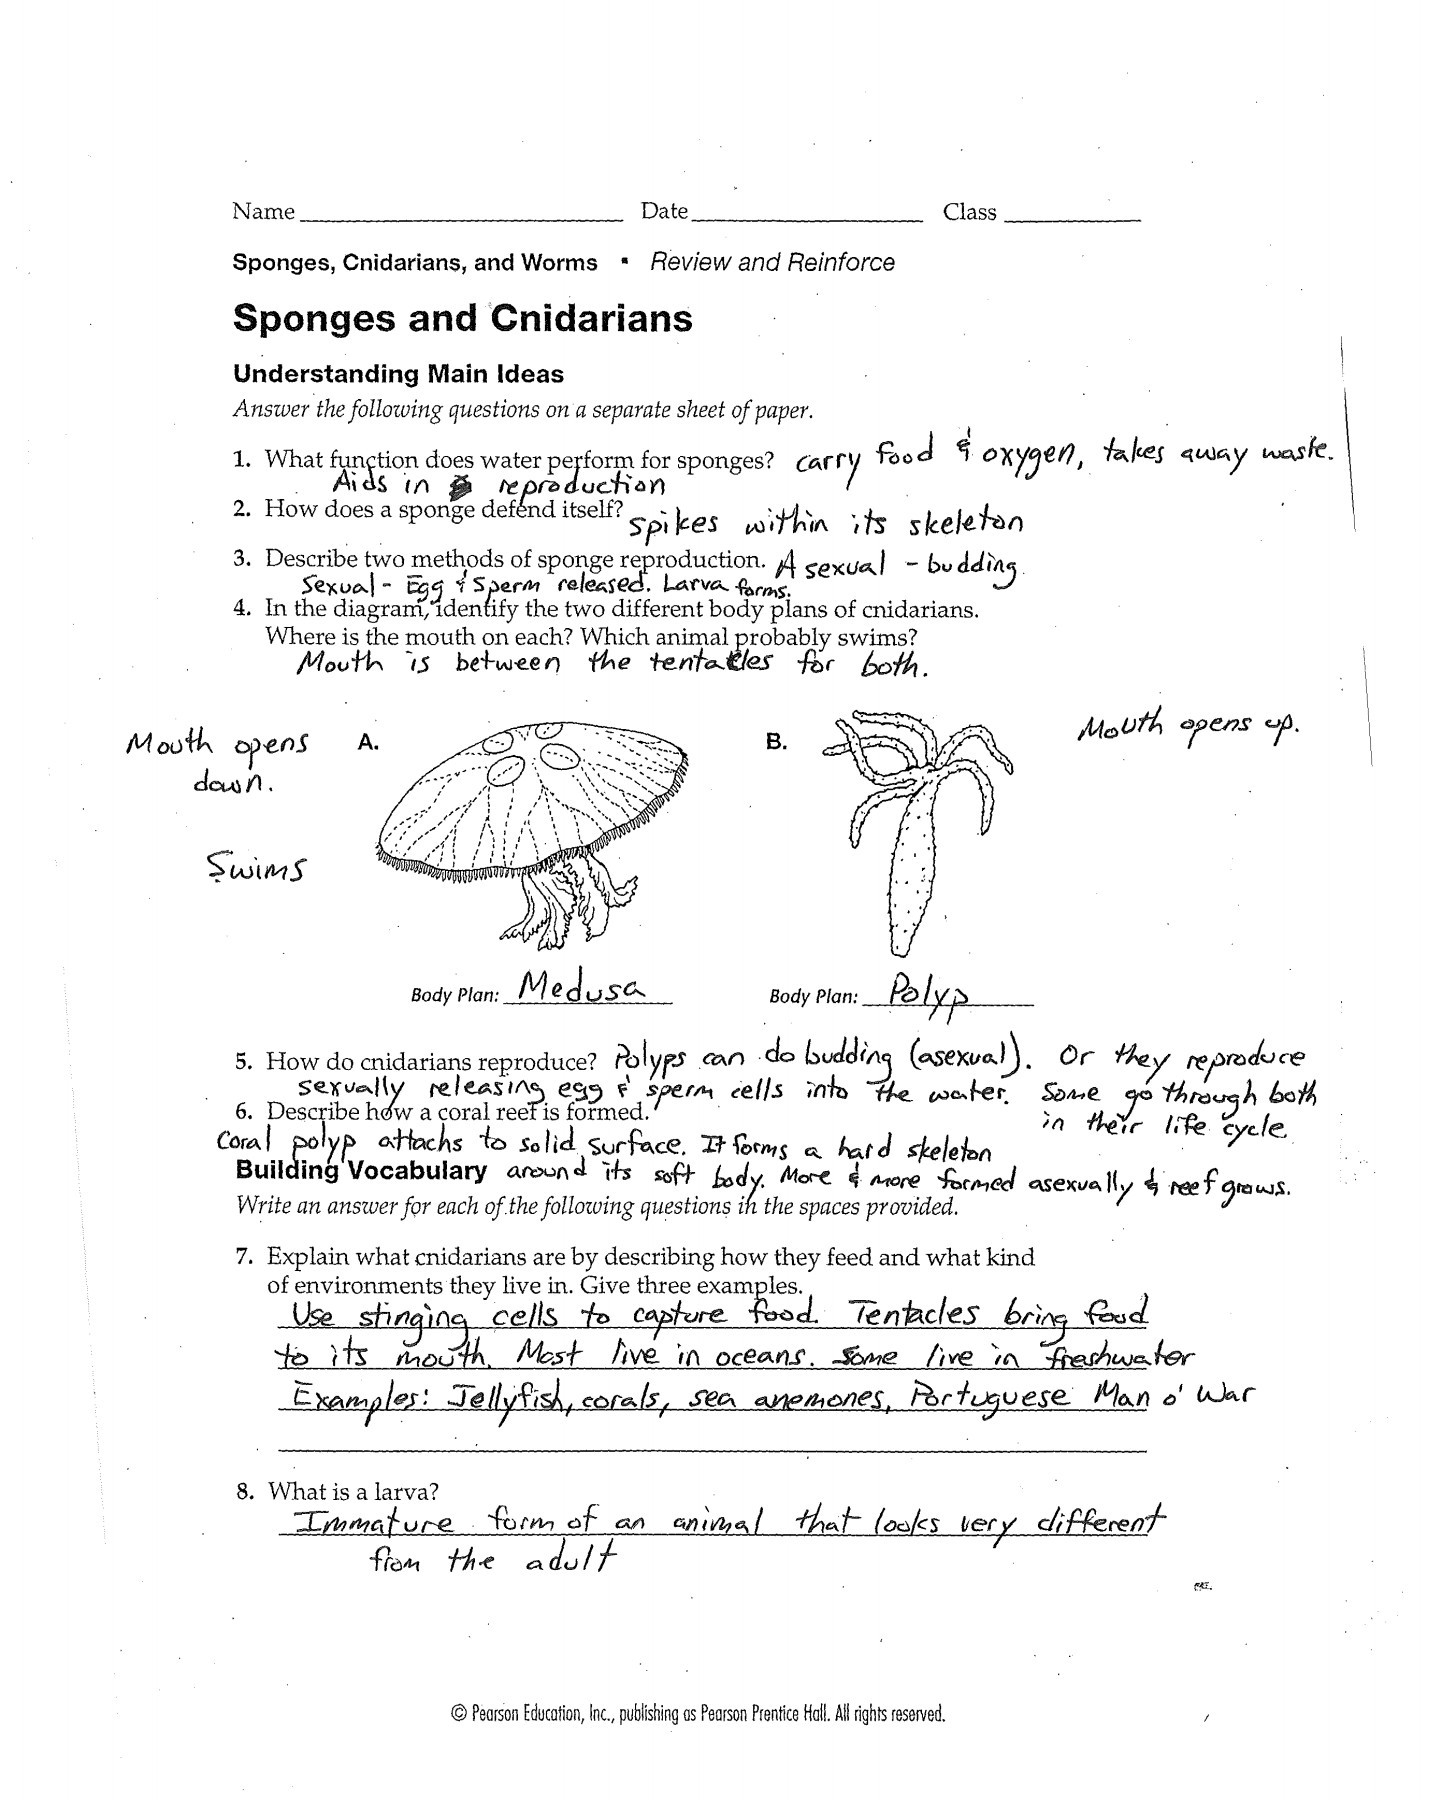 Name Date Class
Sponges, Cnidarians, and Worms • Review and Reinforce
Sponges and Cnidarians
Understanding Main Ideas
Answer the following questions on a separate sheet of paper.
1. What function does water perform for sponges? carry food & oxygen, takes away waste.
Aids in reproduction
2. How does a sponge defend itself? spikes within its skeleton
3. Describe two methods of sponge reproduction. Asexual - budding
Sexual - Egg & Sperm released. Larva forms.
4. In the diagram, identify the two different body plans of cnidarians.
Where is the mouth on each? Which animal probably swims?
Mouth is between the tentacles for both.
Mouth opens down.
Swims
A.
B.
Mouth opens up.
Body Plan: Medusa
Body Plan: Polyp
5. How do cnidarians reproduce? Polyps can do budding (asexual). Or they reproduce
sexually releasing egg & sperm cells into the water. Some go through both
in their life cycle.
6. Describe how a coral reef is formed.
Coral polyp attachs to solid surface. It forms a hard skeleton
around its soft body. More & more formed asexually & reef grows.
Building Vocabulary
Write an answer for each of the following questions in the spaces provided.
7. Explain what cnidarians are by describing how they feed and what kind
of environments they live in. Give three examples.
Use stinging cells to capture food. Tentacles bring food
to its mouth. Most live in oceans. Some live in freshwater
Examples: Jellyfish, corals, sea anemones, Portuguese Man o' War
8. What is a larva?
Immature form of an animal that looks very different
from the adult
© Pearson Education, Inc., publishing as Pearson Prentice Hall. All rights reserved.